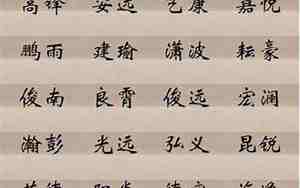 高祥 安远 艺康 嘉悦
鹏雨 建瑜 潇波 耘豪
俊南 良霄 俊远 宏澜
瀚彭 光远 弘义 昆锐